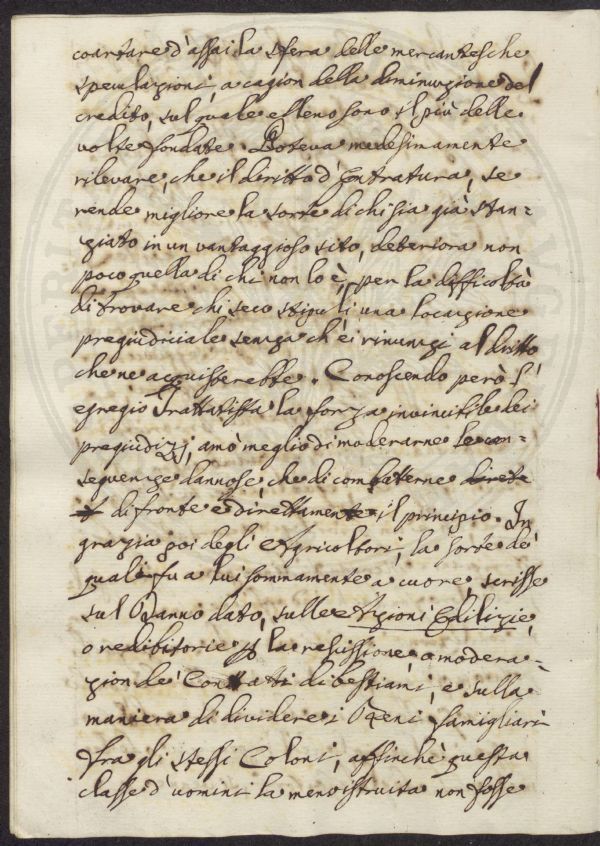 coartare d'assai la sfera delle mercantesche
speculazioni, a cagion della diminuzione del
credito, sul quale elleno sono il più delle
volte fondate. Poteva medesimamente
rilevare, che il diritto d'Entratura, se
rende migliore la sorte di chi sia già stan=
ziato in un vantaggioso sito, deteriora non
poco quella di chi non lo è, per la difficoltà
di trovare chi seco stipuli una locazione
pregiudiciale senza ch'ei rinunzi al diritto
che ne acquisterebbe. Conoscendo però l'
egregio Trattatista la forza invincibile dei
pregiudizj, amò meglio di moderarne le con=
seguenze dannose, che di combatterne
di fronte e direttamente il principio. In
grazia poi degli Agricoltori, la sorte de'
quali fu a lui sommamente a cuore, scrisse
sul Danno dato, sulle Azioni Edilizie,
o redibitorie la rescissione, o modera=
zion de' Contratti di bestiami, e sulla
maniera di dividere i Beni famigliari
fra gli stessi Coloni, affinchè questa
classe d'uomini la meno istruita non fosse